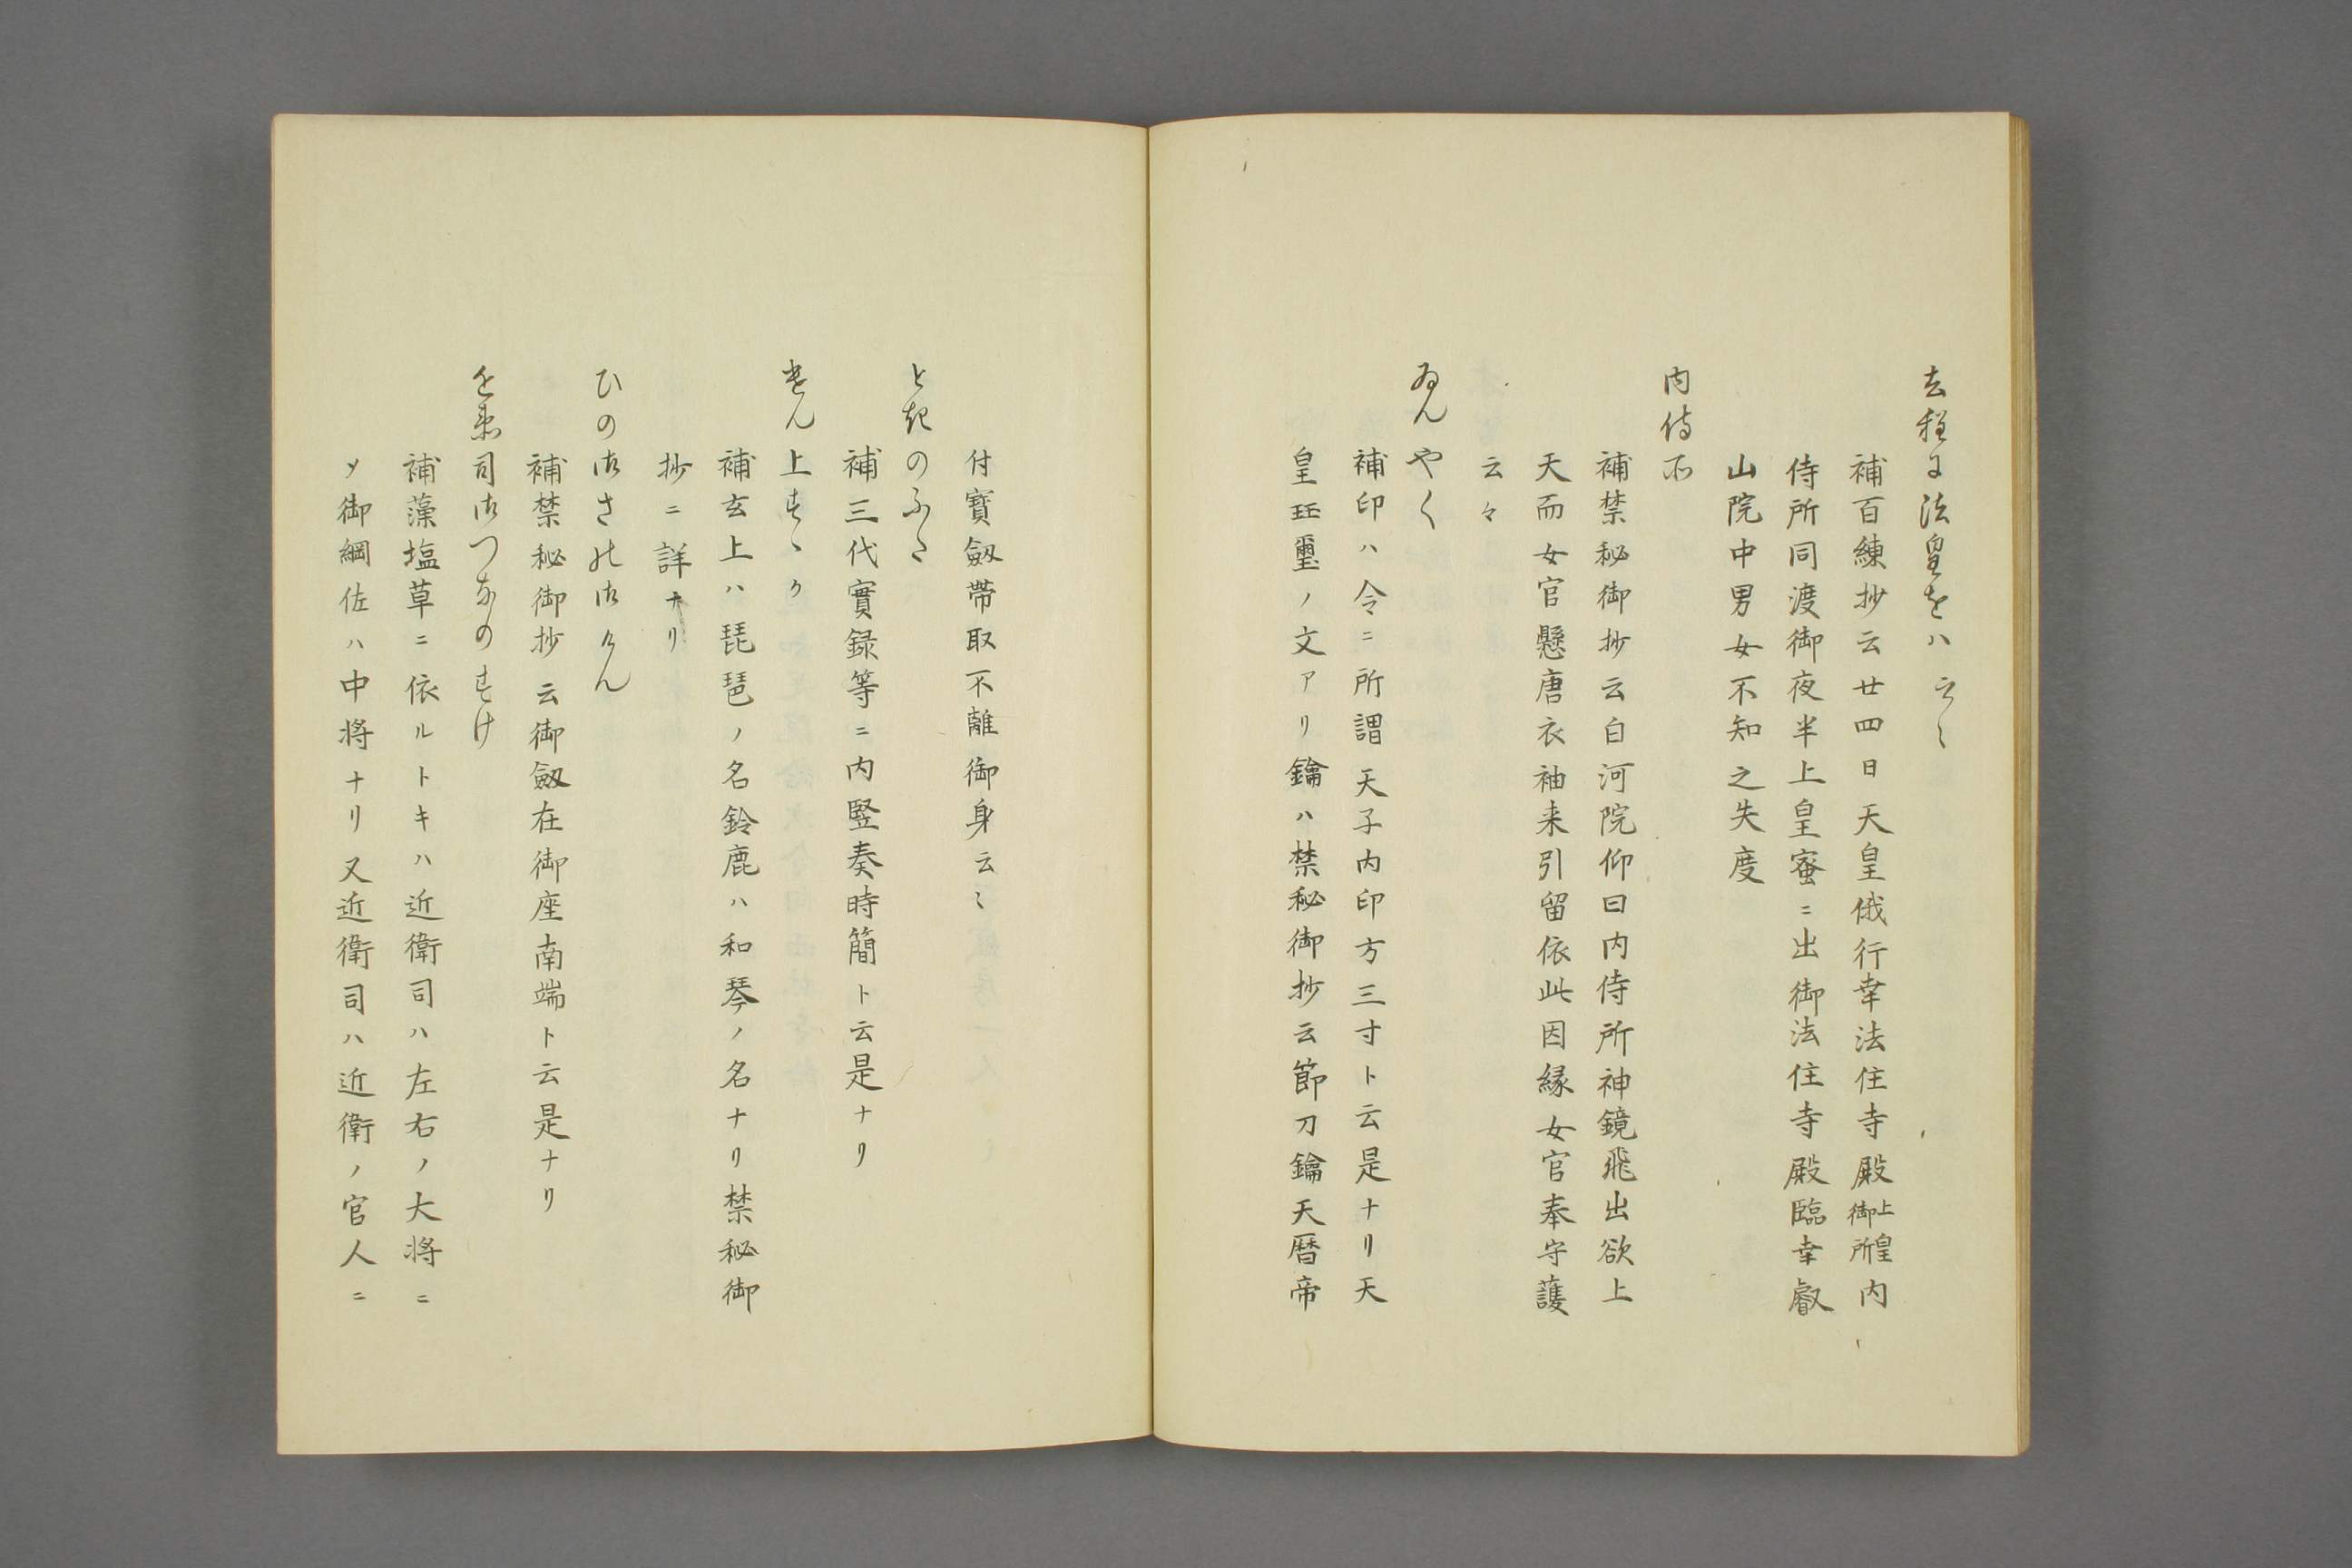 去程に法皇をハ云〻
補百練抄云廿四日天皇俄行幸法住寺殿上皇御所内
侍所同渡御夜半上皇蜜ニ出御法住寺殿臨幸叡
山院中男女不知之失度
内侍所
補禁秘御抄云白河院仰曰内侍所神鏡飛出欲上
天而女官懸唐衣袖来引留依此因縁女官奉守護
云々
ゐんやく
補印ハ令ニ所謂天子内印方三寸ト云是ナリ天
皇玨璽ノ文アリ鑰ハ禁秘御抄云節刀鑰天暦帝
付寳劔帶取不離御身云〻
ときのふた
補三代實録等ニ内竪奏時簡ト云是ナリ
けん上すゝか
補玄上ハ琵琶ノ名鈴鹿ハ和琴ノ名ナリ禁秘御
抄ニ詳ナリ
ひの御さの御けん
補禁秘御抄云御劔在御座南端ト云是ナリ
近衛司御つなのすけ
補藻塩草ニ依ルトキハ近衛司ハ左右ノ大将ニ
メ御綱佐ハ中将ナリ又近衛司ハ近衛ノ官人ニ